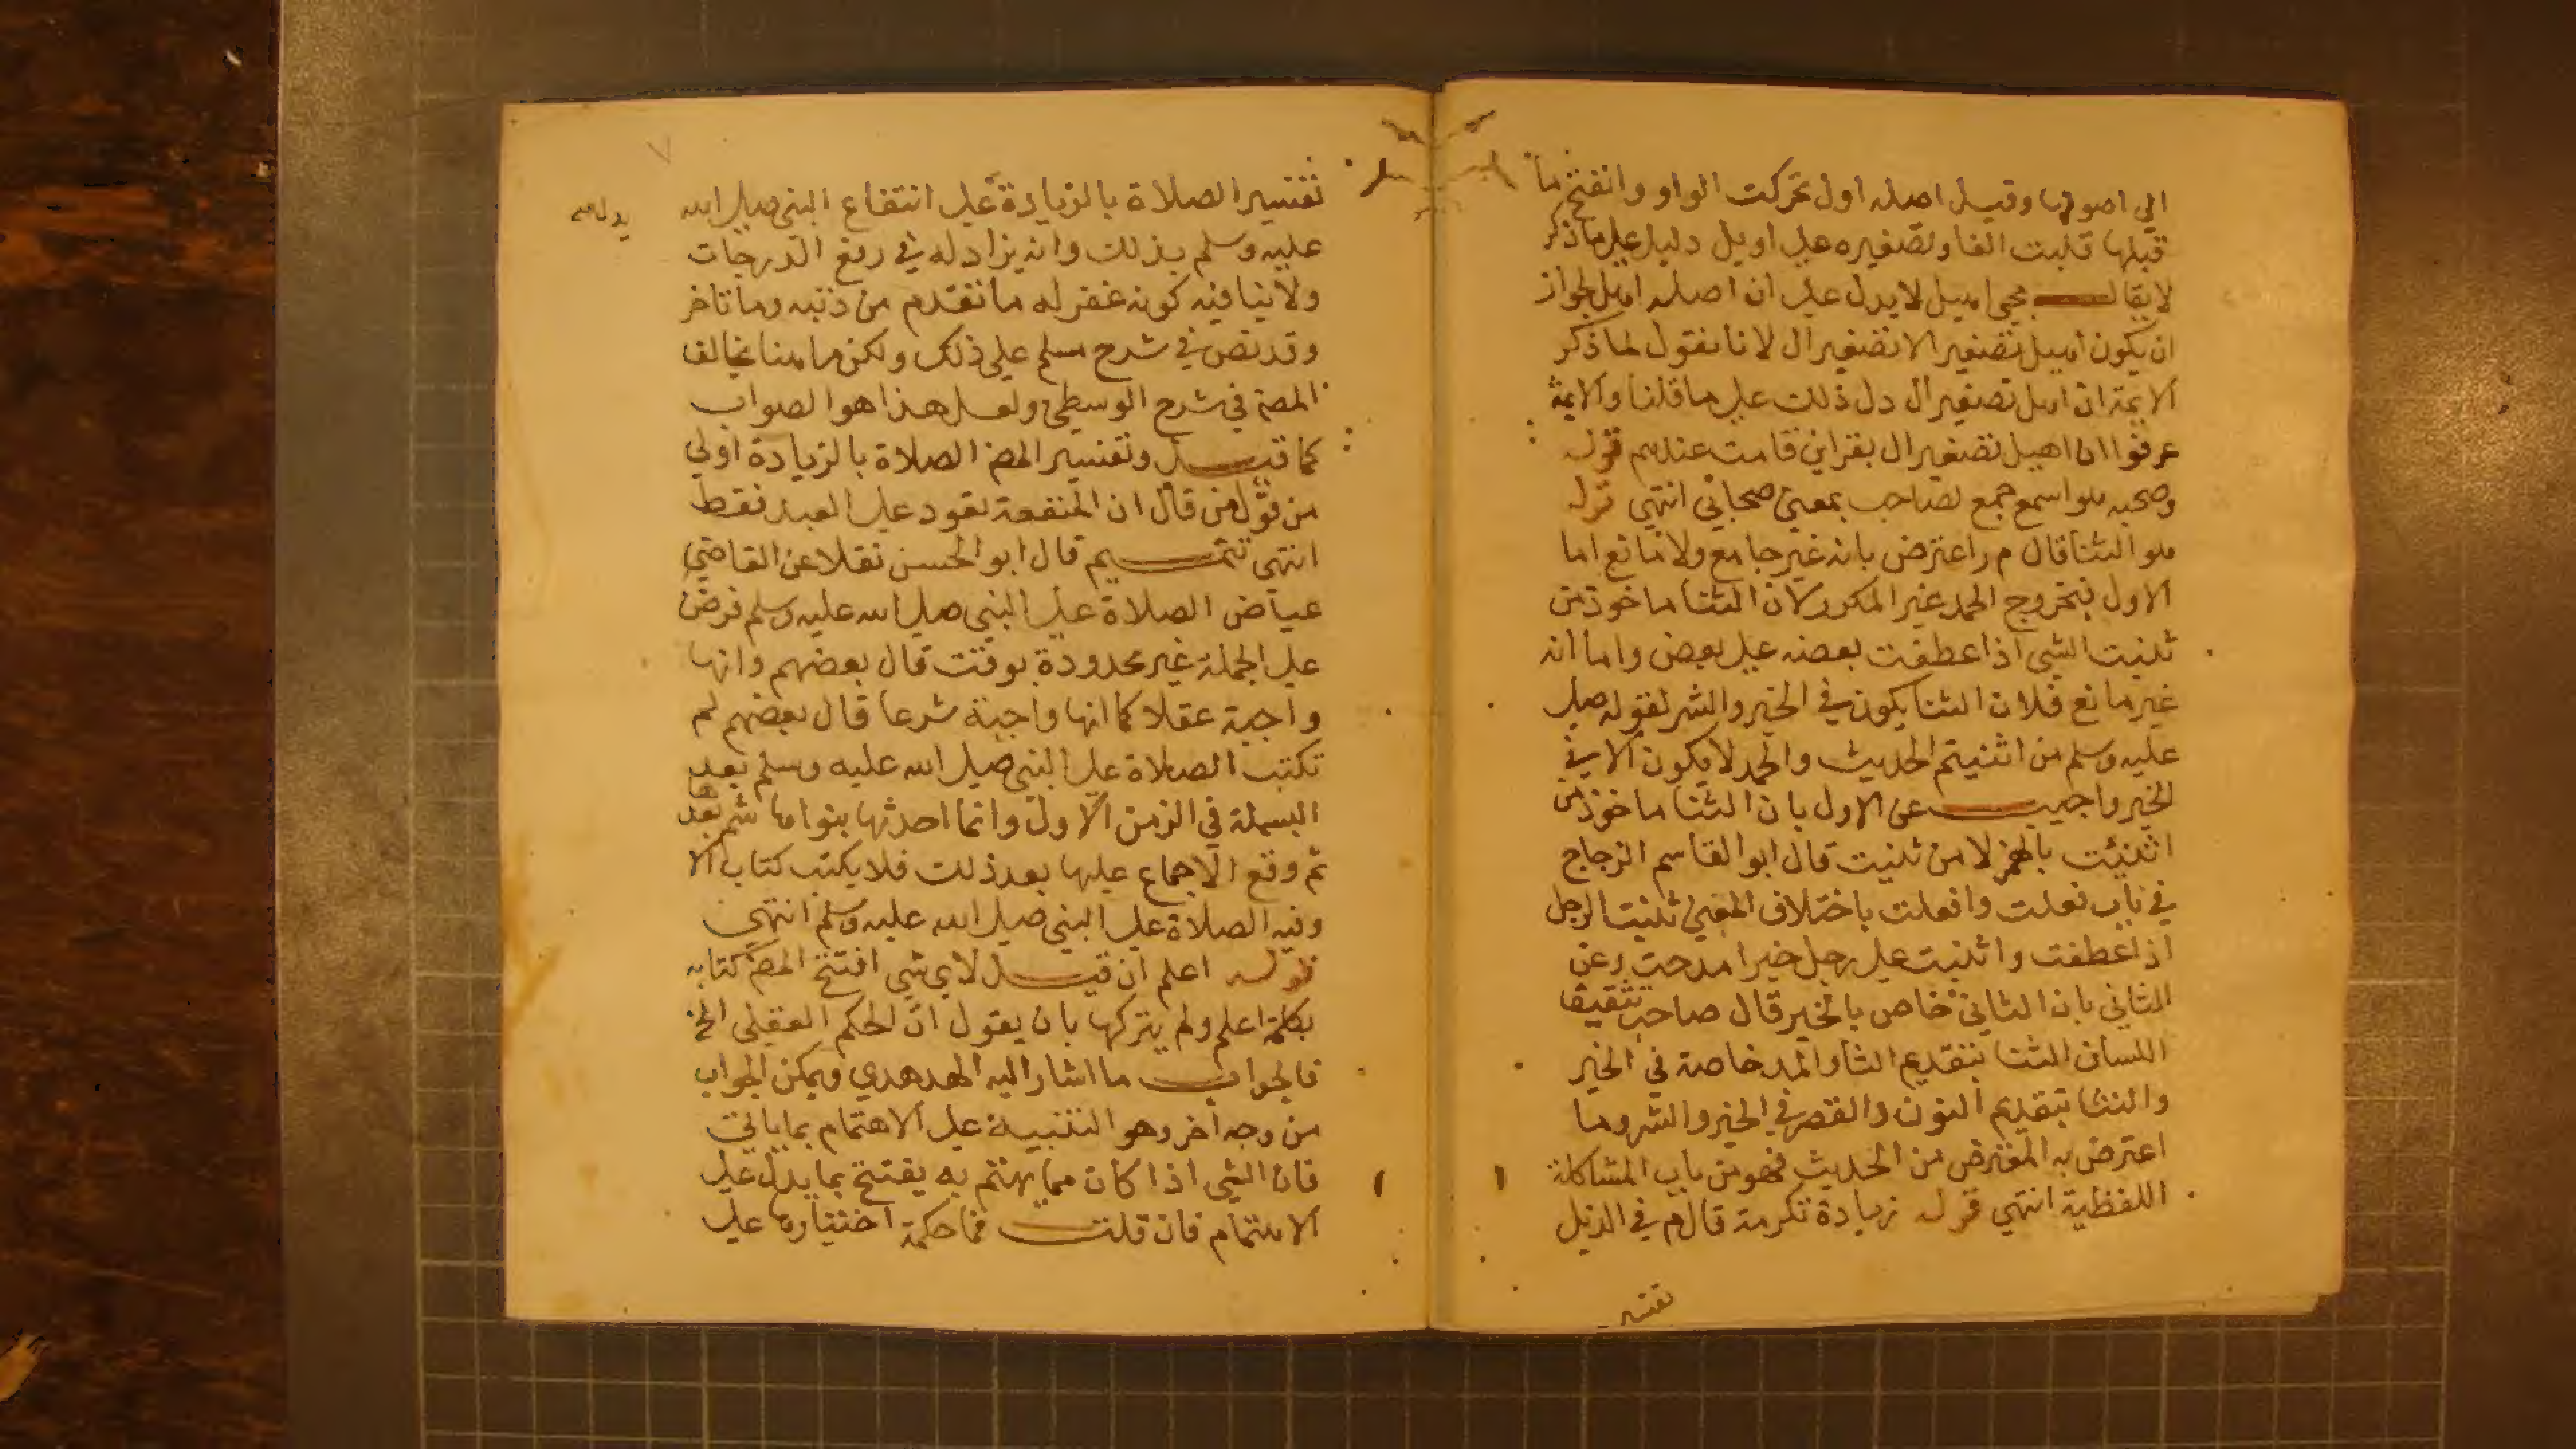 الي اصولها وقيل اصله اول تحركت الواو وانفتح ما
قبلها قلبت الفا وتصغيره علي اويل دليل علي ما ذكر
لا يقال مجي اهيل لا يدل علي ان اصله اهل لجواز
ان يكون اهيل تصغير الا تصغير ال لانا نقول لما ذكر
الايمة ان اهيل تصغير ال دل ذلك علي ما قلنا والايمة
عرفوا ان اهيل تصغير ال بقراين قامت عندهم قوله
وصحبه هو اسم جمع لصاحب بمعني صحابي انتهي قوله
هو الثنا قال م ر اعترض بانه غير جامع ولا مانع اما
الاول فبخروج الحمد غير المكرر لان الثنا ماخوذ من
ثنيت الشي اذا عطفت بعضه علي بعض واما انه
غير مانع فلان الثنا يكون في الخير والشر لقوله صلي
عليه وسلم من اثنيتم الحديث والحمد لا يكون الا في
الخير واجيب عن الاول بان الثنا ماخوذ من
اثنيت بالهمز لا من ثنيت قال ابو القاسم الزجاج
في باب فعلت وافعلت باختلاف المعني ثنيت الرجل
اذا عطفت واثنيت علي رجل خيرا مدحت وعن
الثاني بان الثاني خاص بالخير قال صاحب تثقيف
اللسان الثنا بتقديم الثا والمد خاصة في الخير
والنثا بتقديم النون والقصر في الخير والشر وما
اعترض به المعترض من الحديث فهو من باب المشاكلة
اللفظية انتهي قوله زيادة تكرمة قال م في الذيل
تفسير
تفسير الصلاة بالزيادة علي انتفاع النبي صلي الله
عليه وسلم بذلك وانه يزاد له في رفع الدرجات
ولا ينافيه كونه غفر له ما تقدم من ذنبه وما تاخر
وقد نص في شرح مسلم علي ذلك ولكن ما هنا يخالف
المص في شرح الوسطي ولعل هذا هو الصواب
كما قيل وتفسير المص الصلاة بالزيادة اولي
من قول من قال ان المنفعة تعود علي العبد فقط
انتهي تتميم قال ابو الحسن نقلا عن القاضي
عياض الصلاة علي النبي صلي الله عليه وسلم فرض
علي الجملة غير محدودة بوقت قال بعضهم وانها
واجبة عقلا كما انها واجبة شرعا قال بعضهم لم
تكتب الصلاة علي النبي صلي الله عليه وسلم بعد
البسملة في الزمن الاول وانما احدثها بنوا هاشم بعد
ثم وقع الاجماع عليها بعد ذلك فلا يكتب كتاب الا
وفيه الصلاة علي النبي صلي الله عليه وسلم انتهي
قوله اعلم ان قيل لاي شي افتتح المص كتابه
بكلمة اعلم ولم يتركها بان يقول ان الحكم العقلي الخ
فالجواب ما اشار اليه الهدهدي ويمكن الجواب
من وجه اخر وهو التنبيه علي الاهتمام بما ياتي
فان الشي اذا كان مما يهتم به يفتتح بما يدل علي
الاهتمام فان قلت فما حكمة اختيارها علي